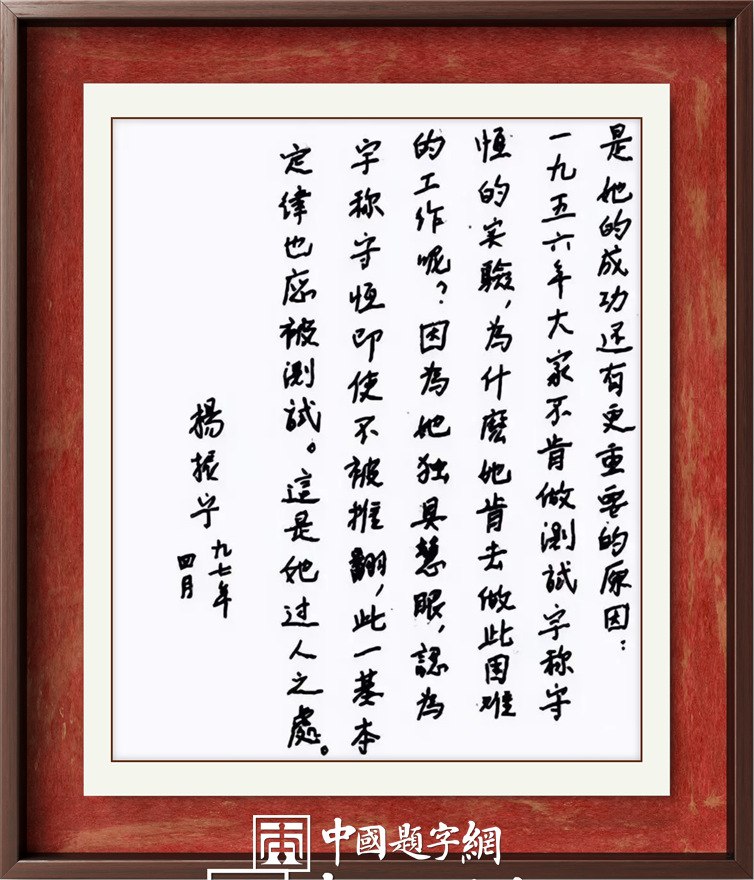 是她的成功还有更重要的原因：
一九五六年大家不肯做测試宇称守
恒的实驗，為什麽她肯去做此困难
的工作呢？因為她独具慧眼，認為
宇称守恒即使不被推翻，此一基本
定律也应被测試。這是她过人之處。
楊振宁
九七年
四月
中國題字網